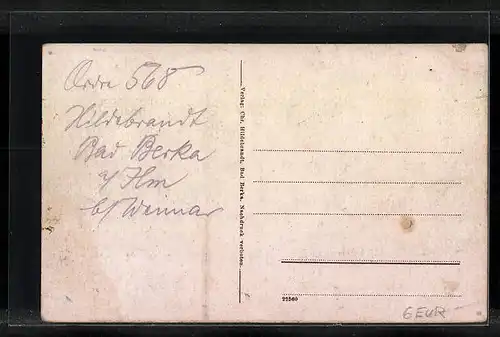 Ordre 568
Hildebrandt
Bad Berka
a/ Ilm
b/ Weimar
Verlag: Chr. Hildebrandt, Bad Berka. Nachdruck verboten.
22560
6 EUR